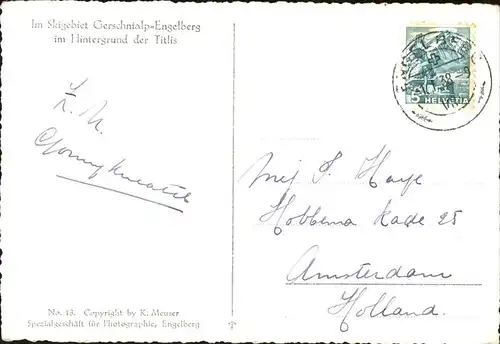 Im Skigebiet Gerschnialp-Engelberg
im Hintergrund der Titlis
5 HELVETIA
J. Haye
Hobbema Kade 25
Amsterdam
Holland.
No. 13. Copyright by K. Meuser
Spezialgeschäft für Photographie, Engelberg